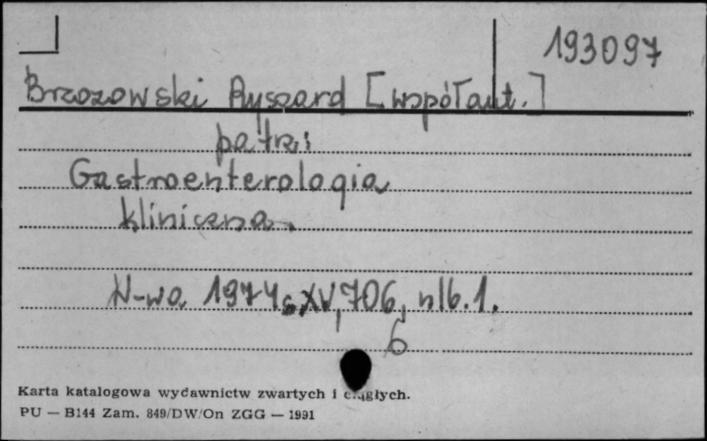 193097
Brzozowski Ryszard [współaut.]
patrz:
Gastroenterologia
kliniczna.
W-wa 1974 s. XV, 706, nlb. 1.
6
Karta katalogowa wydawnictw zwartych i ciągłych.
PU — B144 Zam. 849/DW/On ZGG — 1991